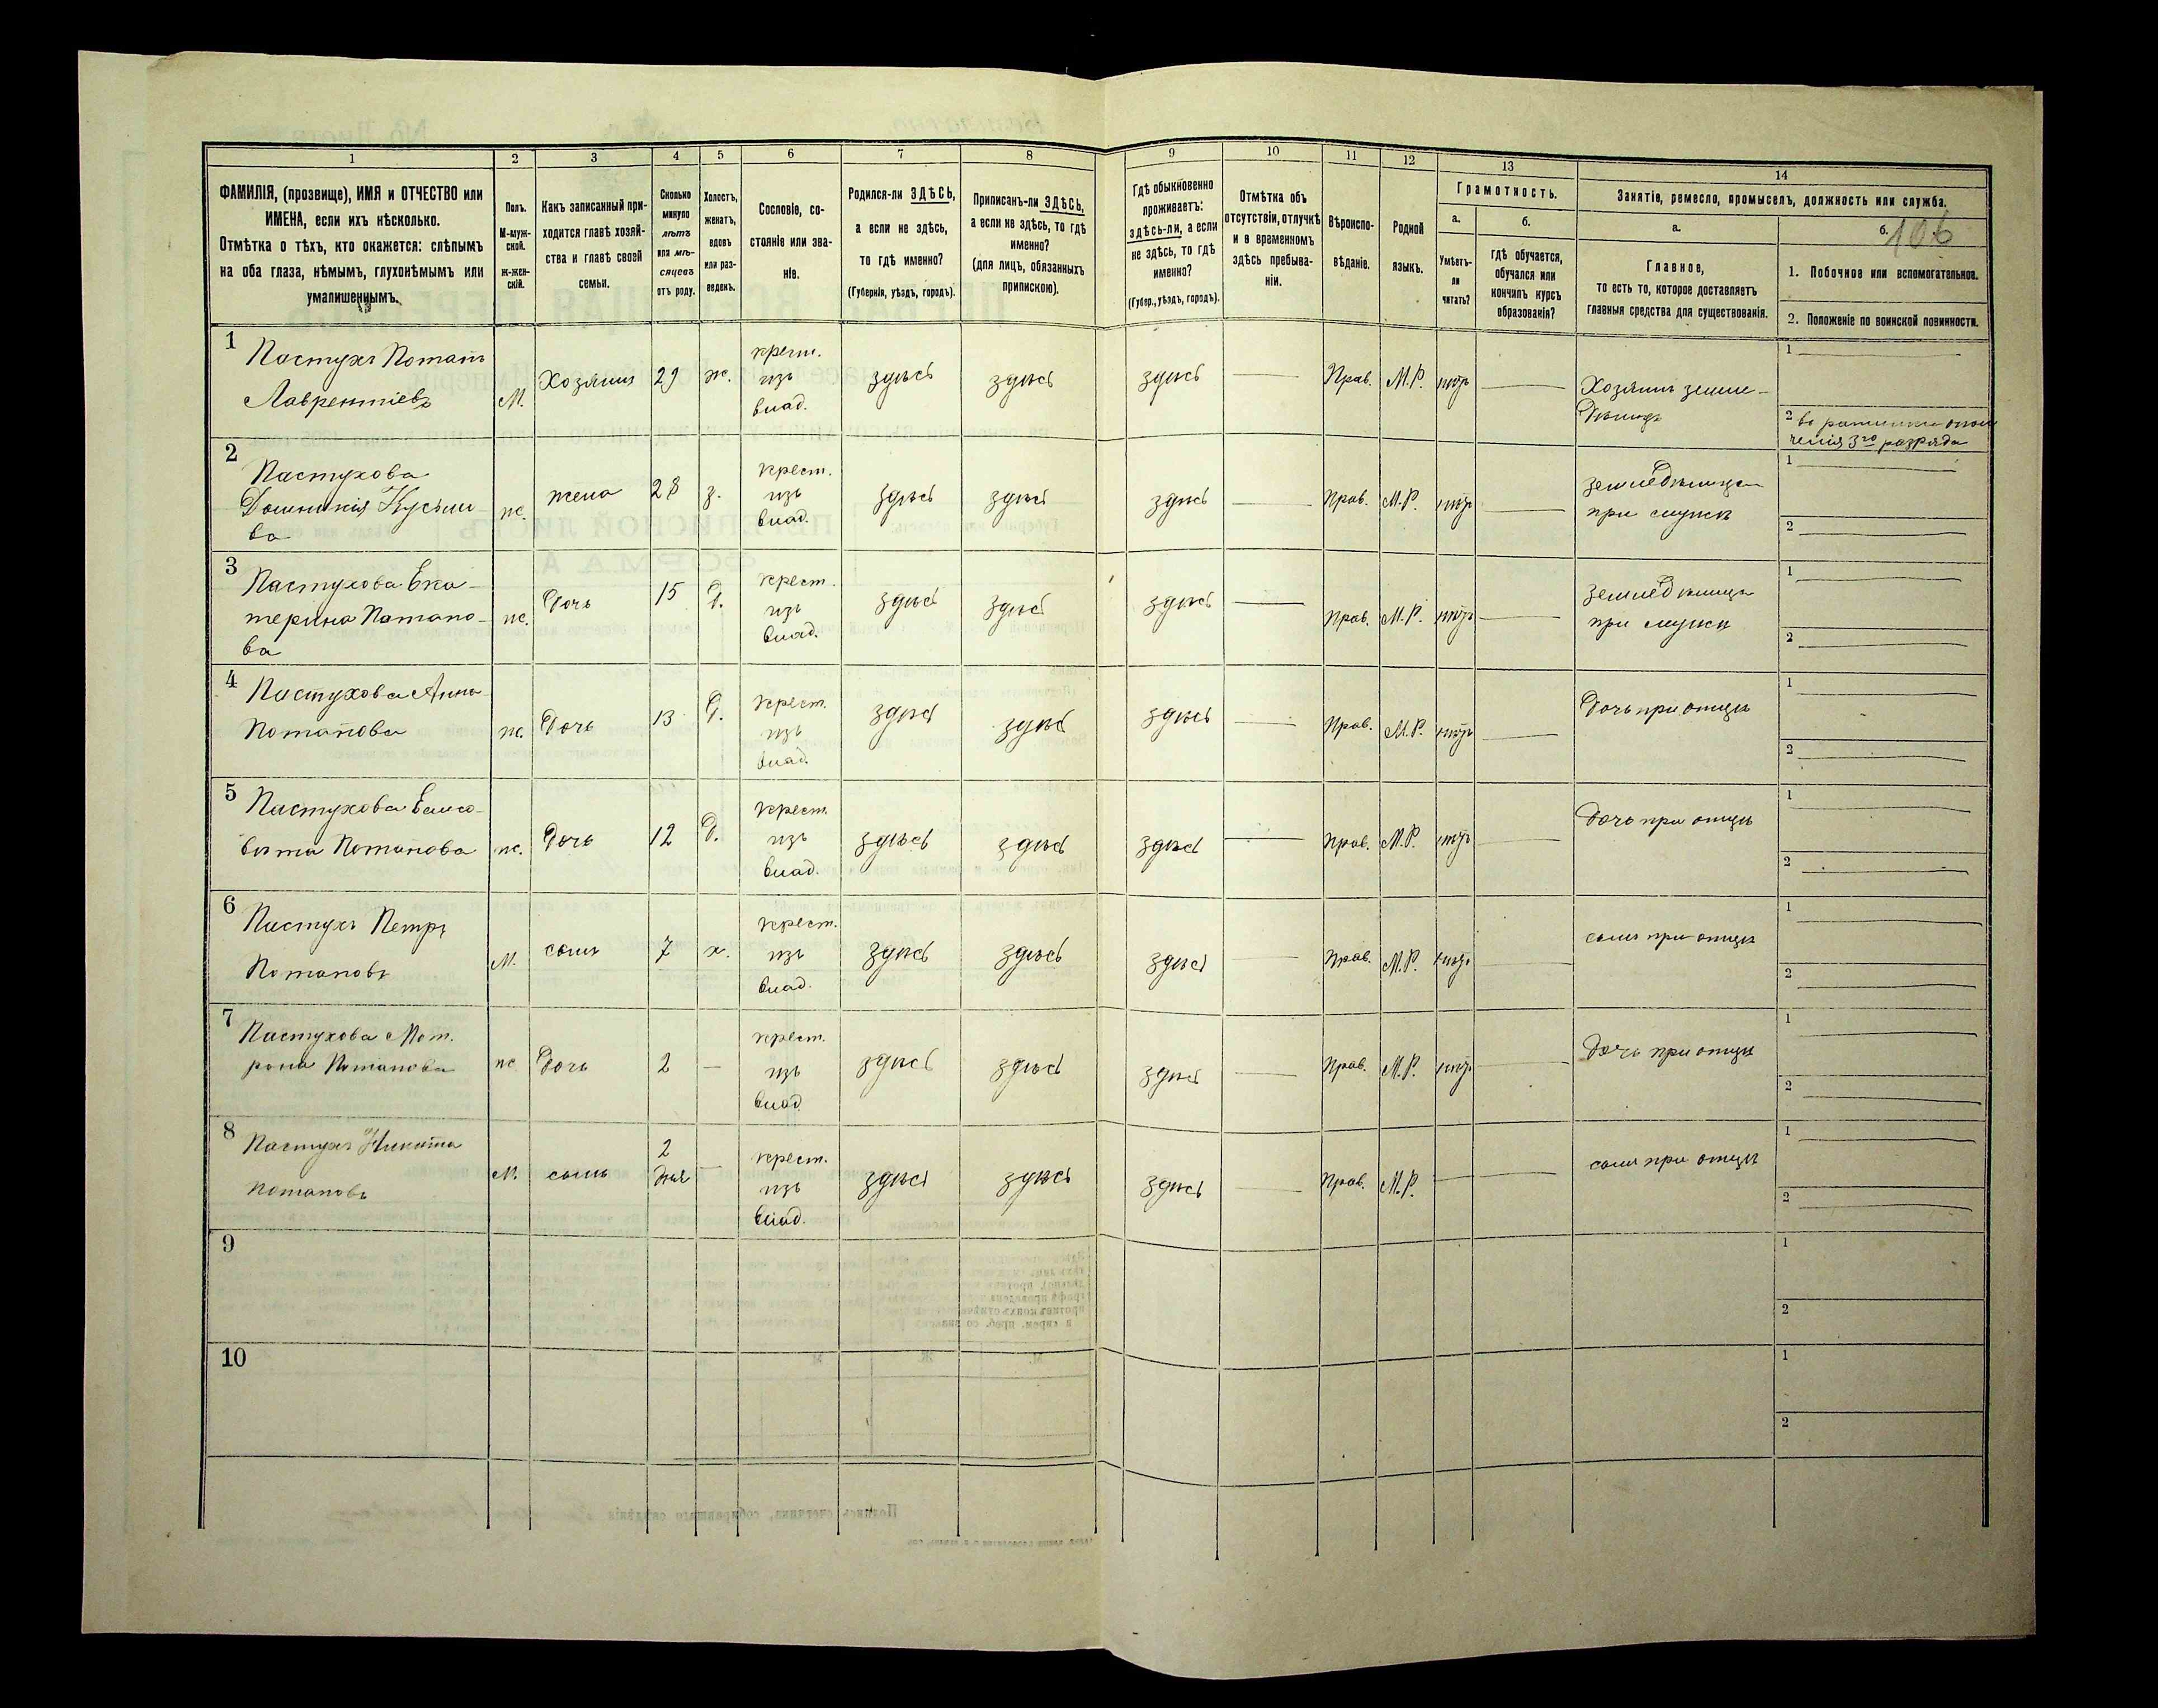 1 2 3 4 5 6 7 8 9 10 11 12 13 14
ФАМИЛІЯ, (прозвище), ИМЯ и ОТЧЕСТВО или
ИМЕНА, если ихъ нѣсколько.
Отмѣтка о тѣхъ, кто окажется: слѣпымъ
на оба глаза, нѣмымъ, глухонѣмымъ или
умалишеннымъ.
Полъ.
М-муж-
ской.
ж-жен-
скій.
Какъ записанный при-
ходится главѣ хозяй-
ства и главѣ своей
семьи.
Сколько
минуло
лѣтъ
или мѣ-
сяцевъ
отъ роду.
Холостъ,
женатъ,
вдовъ
или раз-
веденъ.
Сословіе, со-
стояніе или зва-
ніе.
Родился-ли ЗДѢСЬ,
а если не здѣсь,
то гдѣ именно?
(Губернія, уѣздъ, городъ).
Приписанъ-ли ЗДѢСЬ,
а если не здѣсь, то гдѣ
именно?
(для лицъ, обязанныхъ
припискою).
Гдѣ обыкновенно
проживаетъ:
здѣсь-ли, а если
не здѣсь, то гдѣ
именно?
(Губер., уѣздъ, городъ).
Отмѣтка объ
отсутствіи, отлучкѣ
и о временномъ
здѣсь пребыва-
ніи.
Вѣроиспо-
вѣданіе.
Родной
языкъ.
Грамотность.
а.
Умѣетъ-
ли
читать?
б.
Гдѣ обучается,
обучался или
кончилъ курсъ
образованія?
Занятіе, ремесло, промыселъ, должность или служба.
а.
Главное,
то есть то, которое доставляетъ
главныя средства для существованія.
б.
106
1. Побочное или вспомогательное.
2. Положеніе по воинской повинности.
1
Пастухъ Потапъ
Лаврентіевъ
М.
Хозяинъ
29
ж.
крест.
изъ
влад.
здѣсь
здѣсь
здѣсь
Прав.
М.Р.
нѣтъ
Хозяинъ земле-
дѣлецъ
1
2
3го разряда
2
Пастухова
ва
ж.
жена
28
з.
крест.
изъ
влад.
здѣсь
здѣсь
здѣсь
Прав.
М.Р.
нѣтъ
земледѣлица
при мужѣ
1
2
3
Пастухова Ека-
терина Потапо-
ва
ж.
Дочь
15
Д.
крест.
изъ
влад.
здѣсь
здѣсь
здѣсь
Прав.
М.Р.
нѣтъ
земледѣлица
при мужѣ
1
2
4
Пастухова Анна
Потапова
ж.
Дочь
13
Д.
крест.
изъ
влад.
здѣсь
здѣсь
здѣсь
Прав.
М.Р.
нѣтъ
Дочь при отцѣ
1
2
5
Пастухова Елиса-
вѣта Потапова
ж.
Дочь
12
Д.
крест.
изъ
влад.
здѣсь
здѣсь
здѣсь
Прав.
М.Р.
нѣтъ
Дочь при отцѣ
1
2
6
Пастухъ Петръ
Потаповъ
М.
сынъ
7
х.
крест.
изъ
влад.
здѣсь
здѣсь
здѣсь
Прав.
М.Р.
нѣтъ
сынъ при отцѣ
1
2
7
Пастухова Мот-
рона Потапова
ж
Дочь
2
крест.
изъ
влад.
здѣсь
здѣсь
здѣсь
Прав.
М.Р.
нѣтъ
Дочь при отцѣ
1
2
8
Пастухъ Никита
Потаповъ
М.
сынъ
2
дня
крест.
изъ
влад.
здѣсь
здѣсь
здѣсь
Прав.
М.Р.
сынъ при отцѣ
1
2
9
1
2
10
1
2